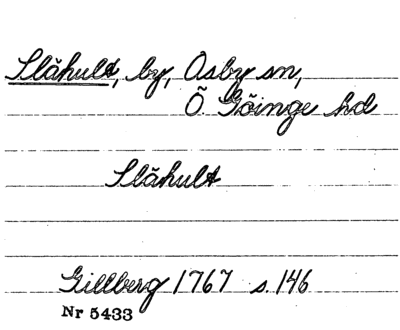 Slähult, by, Osby sn,
Ö. Göinge hd
Slähult
Gillberg 1767 s. 146
Nr 5433